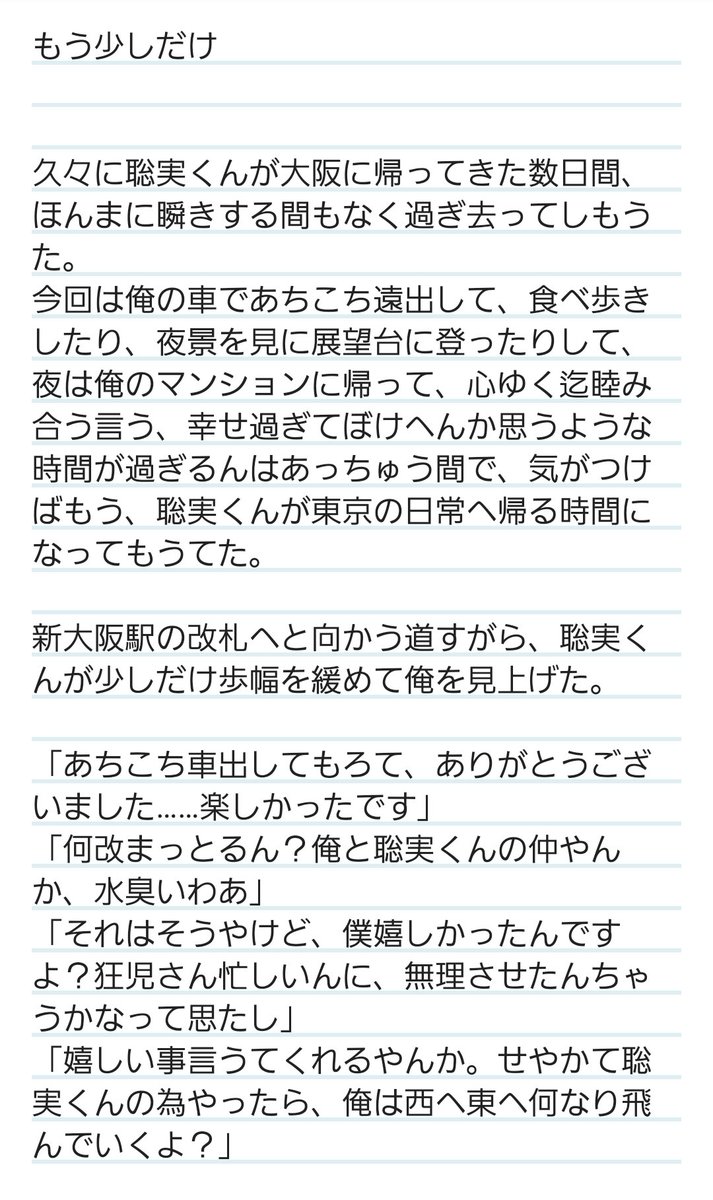 もう少しだけ
久々に聡実くんが大阪に帰ってきた数日間、
ほんまに瞬きする間もなく過ぎ去ってしもう
た。
今回は俺の車であちこち遠出して、食べ歩き
したり、夜景を見に展望台に登ったりして、
夜は俺のマンションに帰って、心ゆく迄睦み
合う言う、幸せ過ぎてぼけへんか思うような
時間が過ぎるんはあっちゅう間で、気がつけ
ばもう、聡実くんが東京の日常へ帰る時間に
なってもうてた。
新大阪駅の改札へと向かう道すがら、聡実く
んが少しだけ歩幅を緩めて俺を見上げた。
「あちこち車出してもろて、ありがとうござ
いました……楽しかったです」
「何改まっとるん？俺と聡実くんの仲やん
か、水臭いわあ」
「それはそうやけど、僕嬉しかったんです
よ？狂児さん忙しいんに、無理させたんちゃ
うかなって思たし」
「嬉しい事言うてくれるやんか。せやかて聡
実くんの為やったら、俺は西へ東へ何なり飛
んでいくよ？」